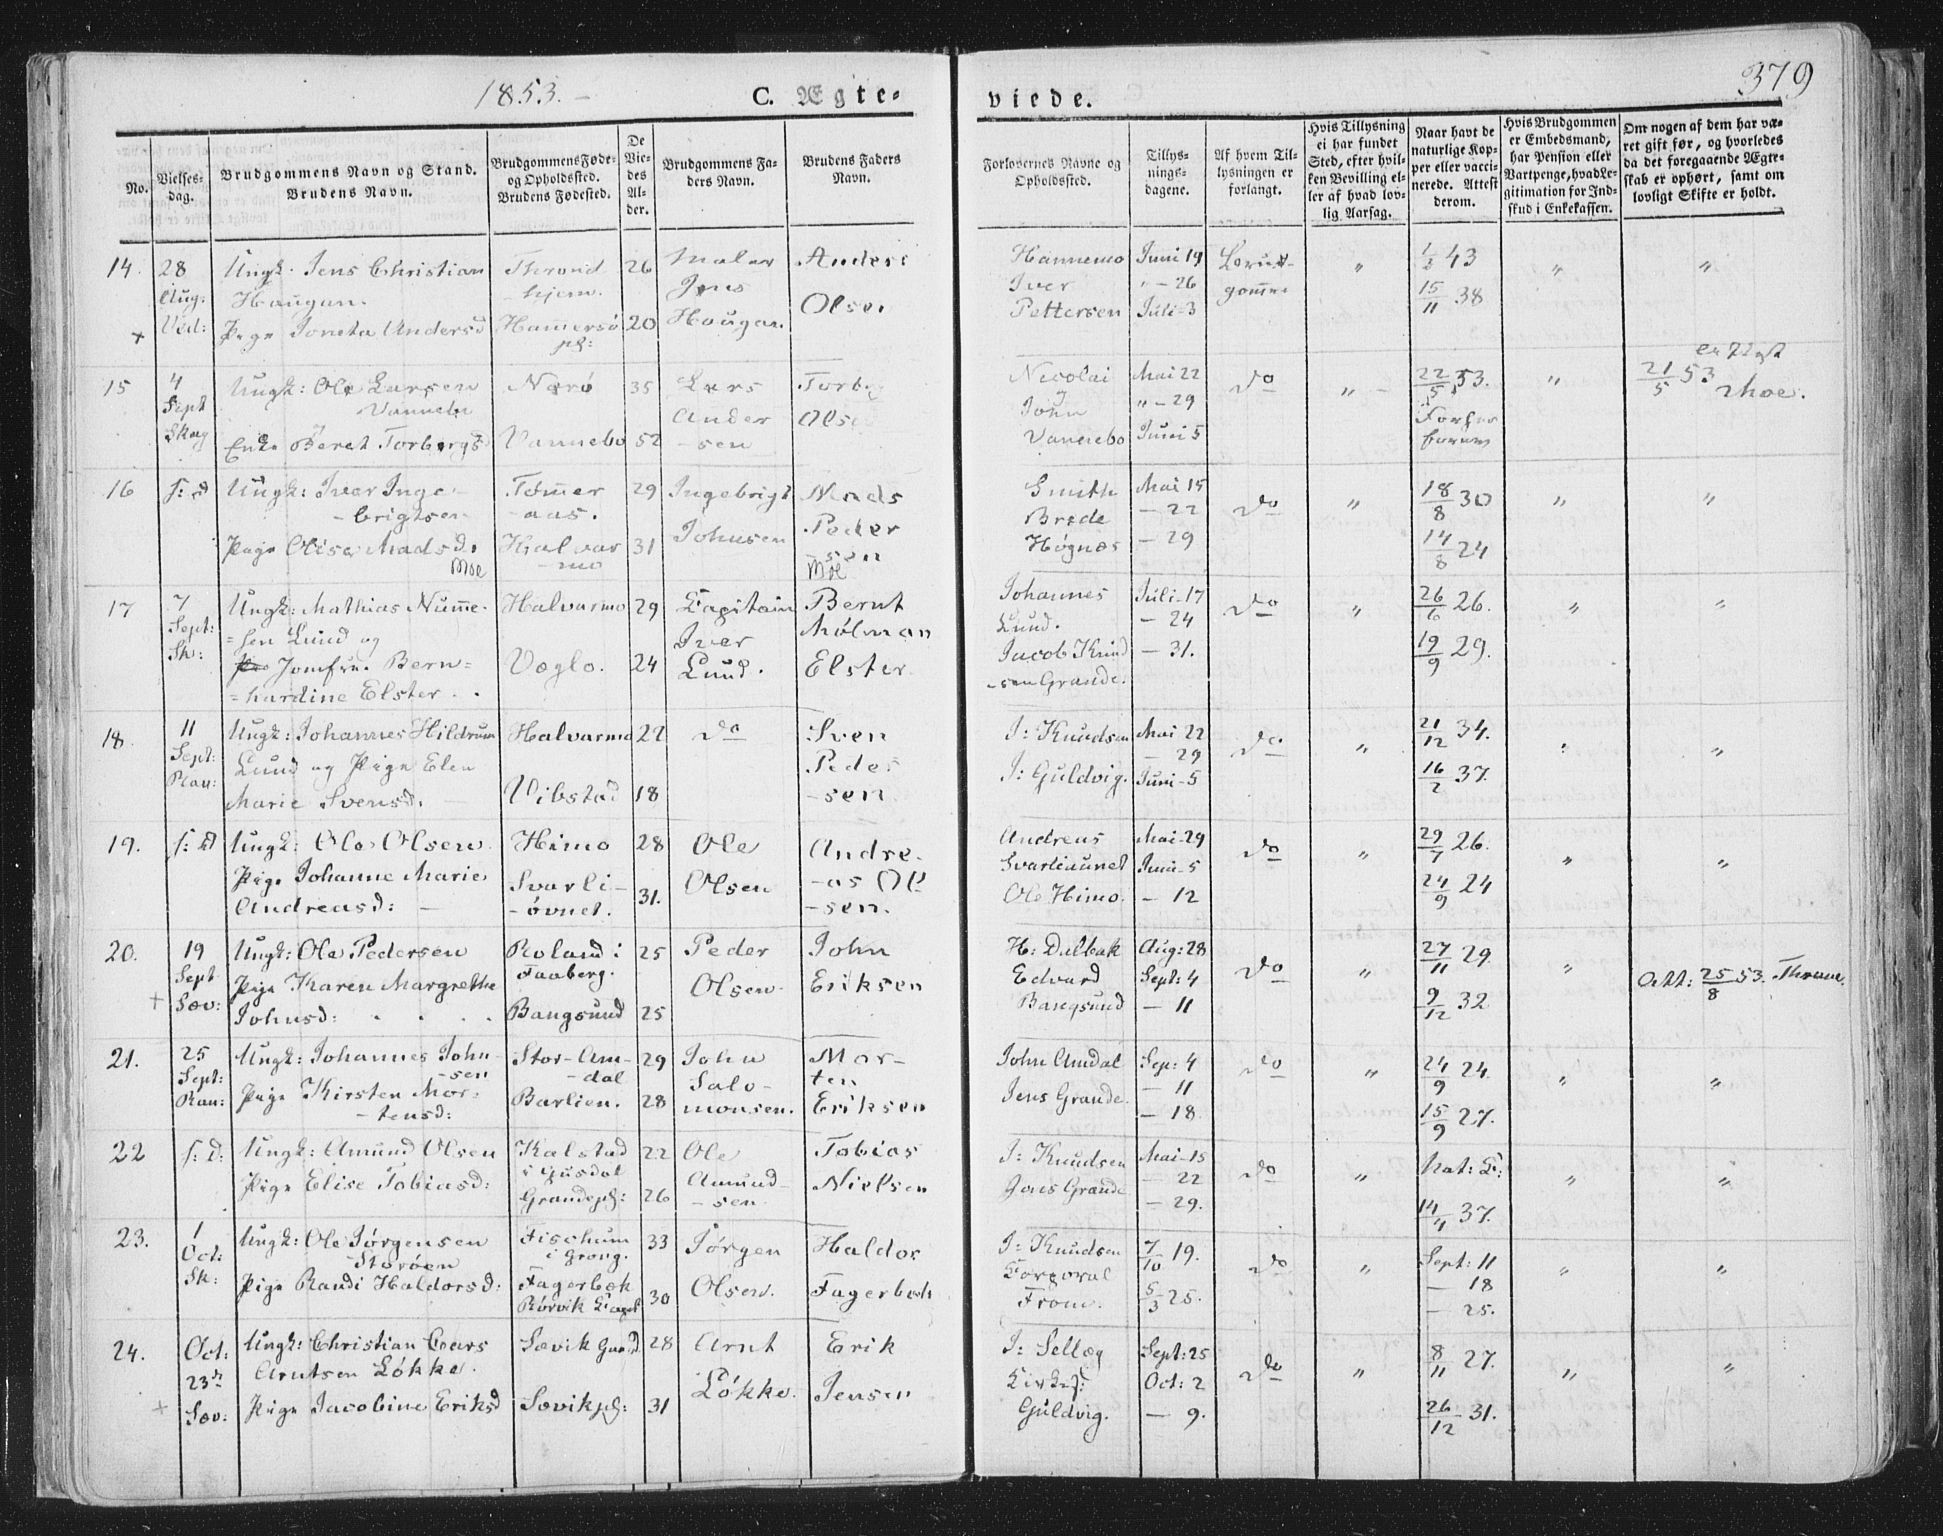 1853. – C. Ægte-
viede. 379
No.
Vielses-
dag.
Brudgommens Navn og Stand.
Brudens Navn.
Brudgommens Føde-
og Opholdssted.
Brudens Fødested.
De
Vie-
des
Al-
der.
Brudgommens Fa-
ders Navn.
Brudens Faders
Navn.
Forlovernes Navne og
Opholdssted.
Tillys-
nings-
dagene.
Af hvem Til-
lysningen er
forlangt.
Hvis Tillysning
ei har fundet
Sted, efter hvil-
ken Bevilling el-
ler af hvad lov-
lig Aarsag.
Naar havt de
naturlige Kop-
per eller vacci-
nerede. Attest
derom.
Hvis Brudgommen
er Embedsmand,
har Pension eller
Vartpenge, hvad Le-
gitimation for Ind-
skud i Enkekassen.
Om nogen af dem har væ-
ret gift før, og hvorledes
da det foregaaende Ægte-
skab er ophørt, samt om
lovligt Skifte er holdt.
14. 28
Aug:
Ved:
+
Ungk. Jens Christian
Haugan.
Pige Joneta Andersd
Thrond
-hjem.
Hammersø
pl:
26
20
Maler
Jens
Hougan.
Anders
Olsen
Hannemo
Iver
Pettersen
Juni 19
" - 26
Juli - 3
Brud-
gommen
"
1/2 43
15/11 38
"
"
15 4
Sept
Skag
Ungk: Ole Larsen
Vannebo
Enke Beret Torbergsd
Nærø
Vannebo
35
52
Lars
Ander
-sen
Torb
Olse
Nicolai
John
Vannebo
Mai 22
" - 29
Juni 5
do
"
22/5 53.
"
21/5 53
Moe.
16 s: d
Ungk: Iver Inge-
-brigtsen
Pige Olise Madsd.
Moe
Tømmer
-aas.
Halvar
-mo
29
31
Ingebrigt
Johnsen
Mads
Peder
-sen
Moe
Smith
Brede
Høgnæs
Mai 15
- 22
- 29
do
"
18/8 30
14/8 24
"
"
17 7
Sept:
Sk:
Ungk: Mathias Numme-
=sen Lund og
Jomfru Bern=
=hardine Elster.
Halvarmo
Voglo.
29
24
Capitain
Iver
Lund.
Bernt
Mølman
Elster
Johannes
Lund.
Jacob Knud
-sen Grande.
Juli - 17
- 24
- 31.
do
"
26/6 26.
19/9 29.
"
"
18. 11
Sept:
Ran:
Ungk: Johannes Hildrum
Lund og Pige Elen
Marie Svensd.
Halvarmo
Vibstad
22
18
do
Sven
Peder
-sen
J: Knudsen
J: Guldvig.
Mai 22
- 29
Juni - 5
do
"
21/12 34.
16/2 37.
"
"
19. s: d
Ungk: Ole Olsen
Pige Johanne Marie
Andreasd:
Himo
Svarli-
-øvnet.
28
31.
Ole
Olsen
Andre-
-as Ol
-sen.
Andreas
Svarliaunet
Ole Himo.
Mai - 29
Juni - 5
- 12
do
"
29/7 26.
24/9 24
"
"
20. 19
Sept
Sæv:
+
Ungk: Ole Pedersen
Pige Karen Margrethe
Johnsd:
Roland i
Faaberg.
Bangsund
25
25
Peder
Olsen
John
Eriksen
H: Dalbak
Edvard
Bangsund
Aug: 28
Sept: 4
- 11
do
"
27/11 29.
9/12 32
"
Att: 25/8 53. Thrane.
21. 25
Sept:
Ran:
Ungk: Johannes John-
-sen
Pige Kirsten Mor-
-tensd:
Stor-Am-
-dal
Barlien.
29
28
John
Salo-
monsen.
Mor-
ten
Eriksen
John Amdal
Jens Grande.
Sep: 4
- 11
- 18
do
"
24/9 24.
15/9 27.
"
"
22 s: d:
Ungk: Amund Olsen
Pige Elise Tobiasd:
Kalstad
i Gusdal
Grandepl:
22
26
Ole
Amund-
-sen
Tobias
Nielsen
J: Knudsen
Jens Grande
Mai - 15
- 22
- 29.
do
"
Nat: K:
14/4 37.
"
"
23. 1
Oct:
Sk:
Ungk: Ole Jørgensen
Storøen
Pige Randi Haldorsd:
Fischum
i Grong.
Fagerbæk
Rørvik
33
30
Jørgen
Olsen.
Haldor
Fagerbæk
J: Knudsen
Corporal
From.
7/10 19.
5/3 25.
do
"
Sept: 11
- 18
- 25.
"
"
24. Oct:
23de
Sæv:
+
Ungk: Christian Lars
Arntsen Løkke.
Pige Jacobine Eriksd
Sævik Gaard
Sævikpl:
28
31
Arnt
Løkke.
Erik
Jensen
J: Sellæg
Kirkes:
Guldvig.
Sept: 25
Oct: 2
- 9.
do
"
8/11 27.
26/12 31.
"
"